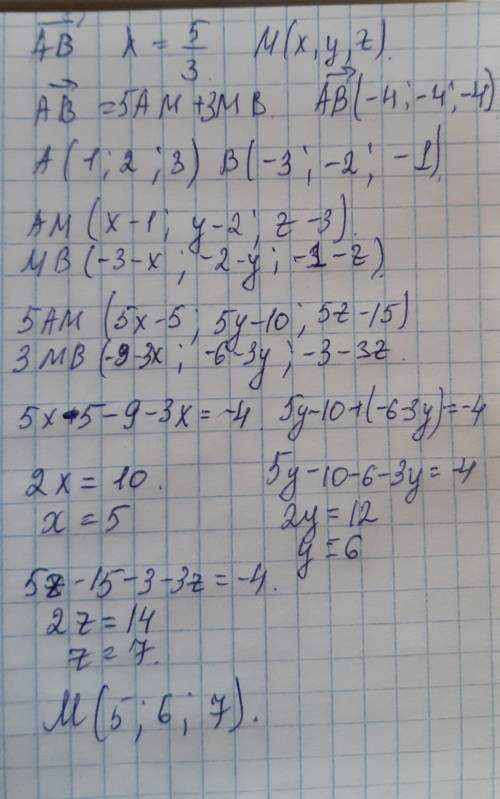 AB λ = 5/3 M(x, y, z).
AB = 5AM + 3MB. AB(-4; -4; -4)
A(1; 2; 3) B(-3; -2; -1)
AM (x-1; y-2; z-3).
MB (-3-x; -2-y; -1-z)
5AM (5x-5; 5y-10; 5z-15)
3MB (-9-3x; -6-3y; -3-3z.
5x-5-9-3x = -4. 5y-10+(-6-3y) = -4
2x = 10. 5y-10-6-3y = -4
x = 5 2y = 12
y = 6
5z-15-3-3z = -4.
2z = 14
z = 7.
M(5; 6; 7).